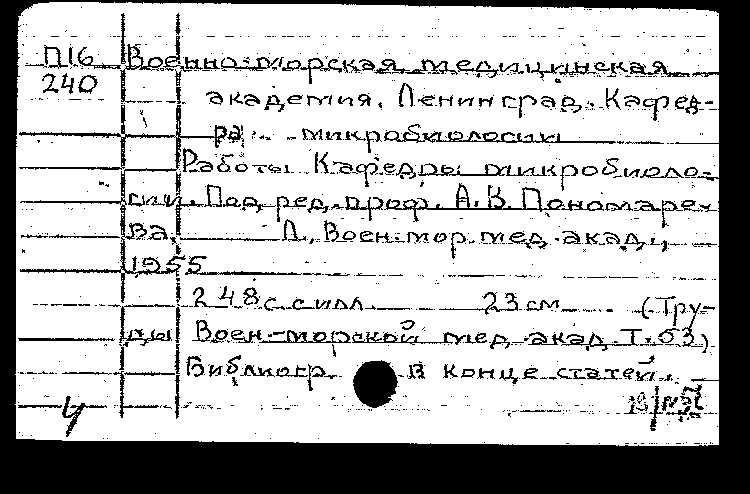 П16 Военно-морская медицинская
240 академия. Ленинград. Кафед-
ра микробиологии
Работы Кафедры микробиоло-
гии. Под ред. проф. А.В. Пономаре-
ва. Л., Воен-мор. мед. акад.,
1955
248 с. с илл. 23 см. (Тру-
ды Воен-морской мед. акад. Т. 63)
Библиогр. в конце статей.